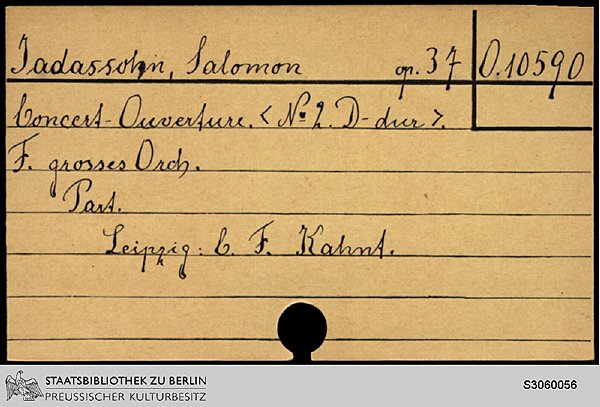 Jadassohn, Salomon op. 37 O.10590
Concert-Ouverture. < No 2. D-dur >.
F. grosses Orch.
Part.
Leipzig: C. F. Kahnt.
STAATSBIBLIOTHEK ZU BERLIN
PREUSSISCHER KULTURBESITZ
S3060056